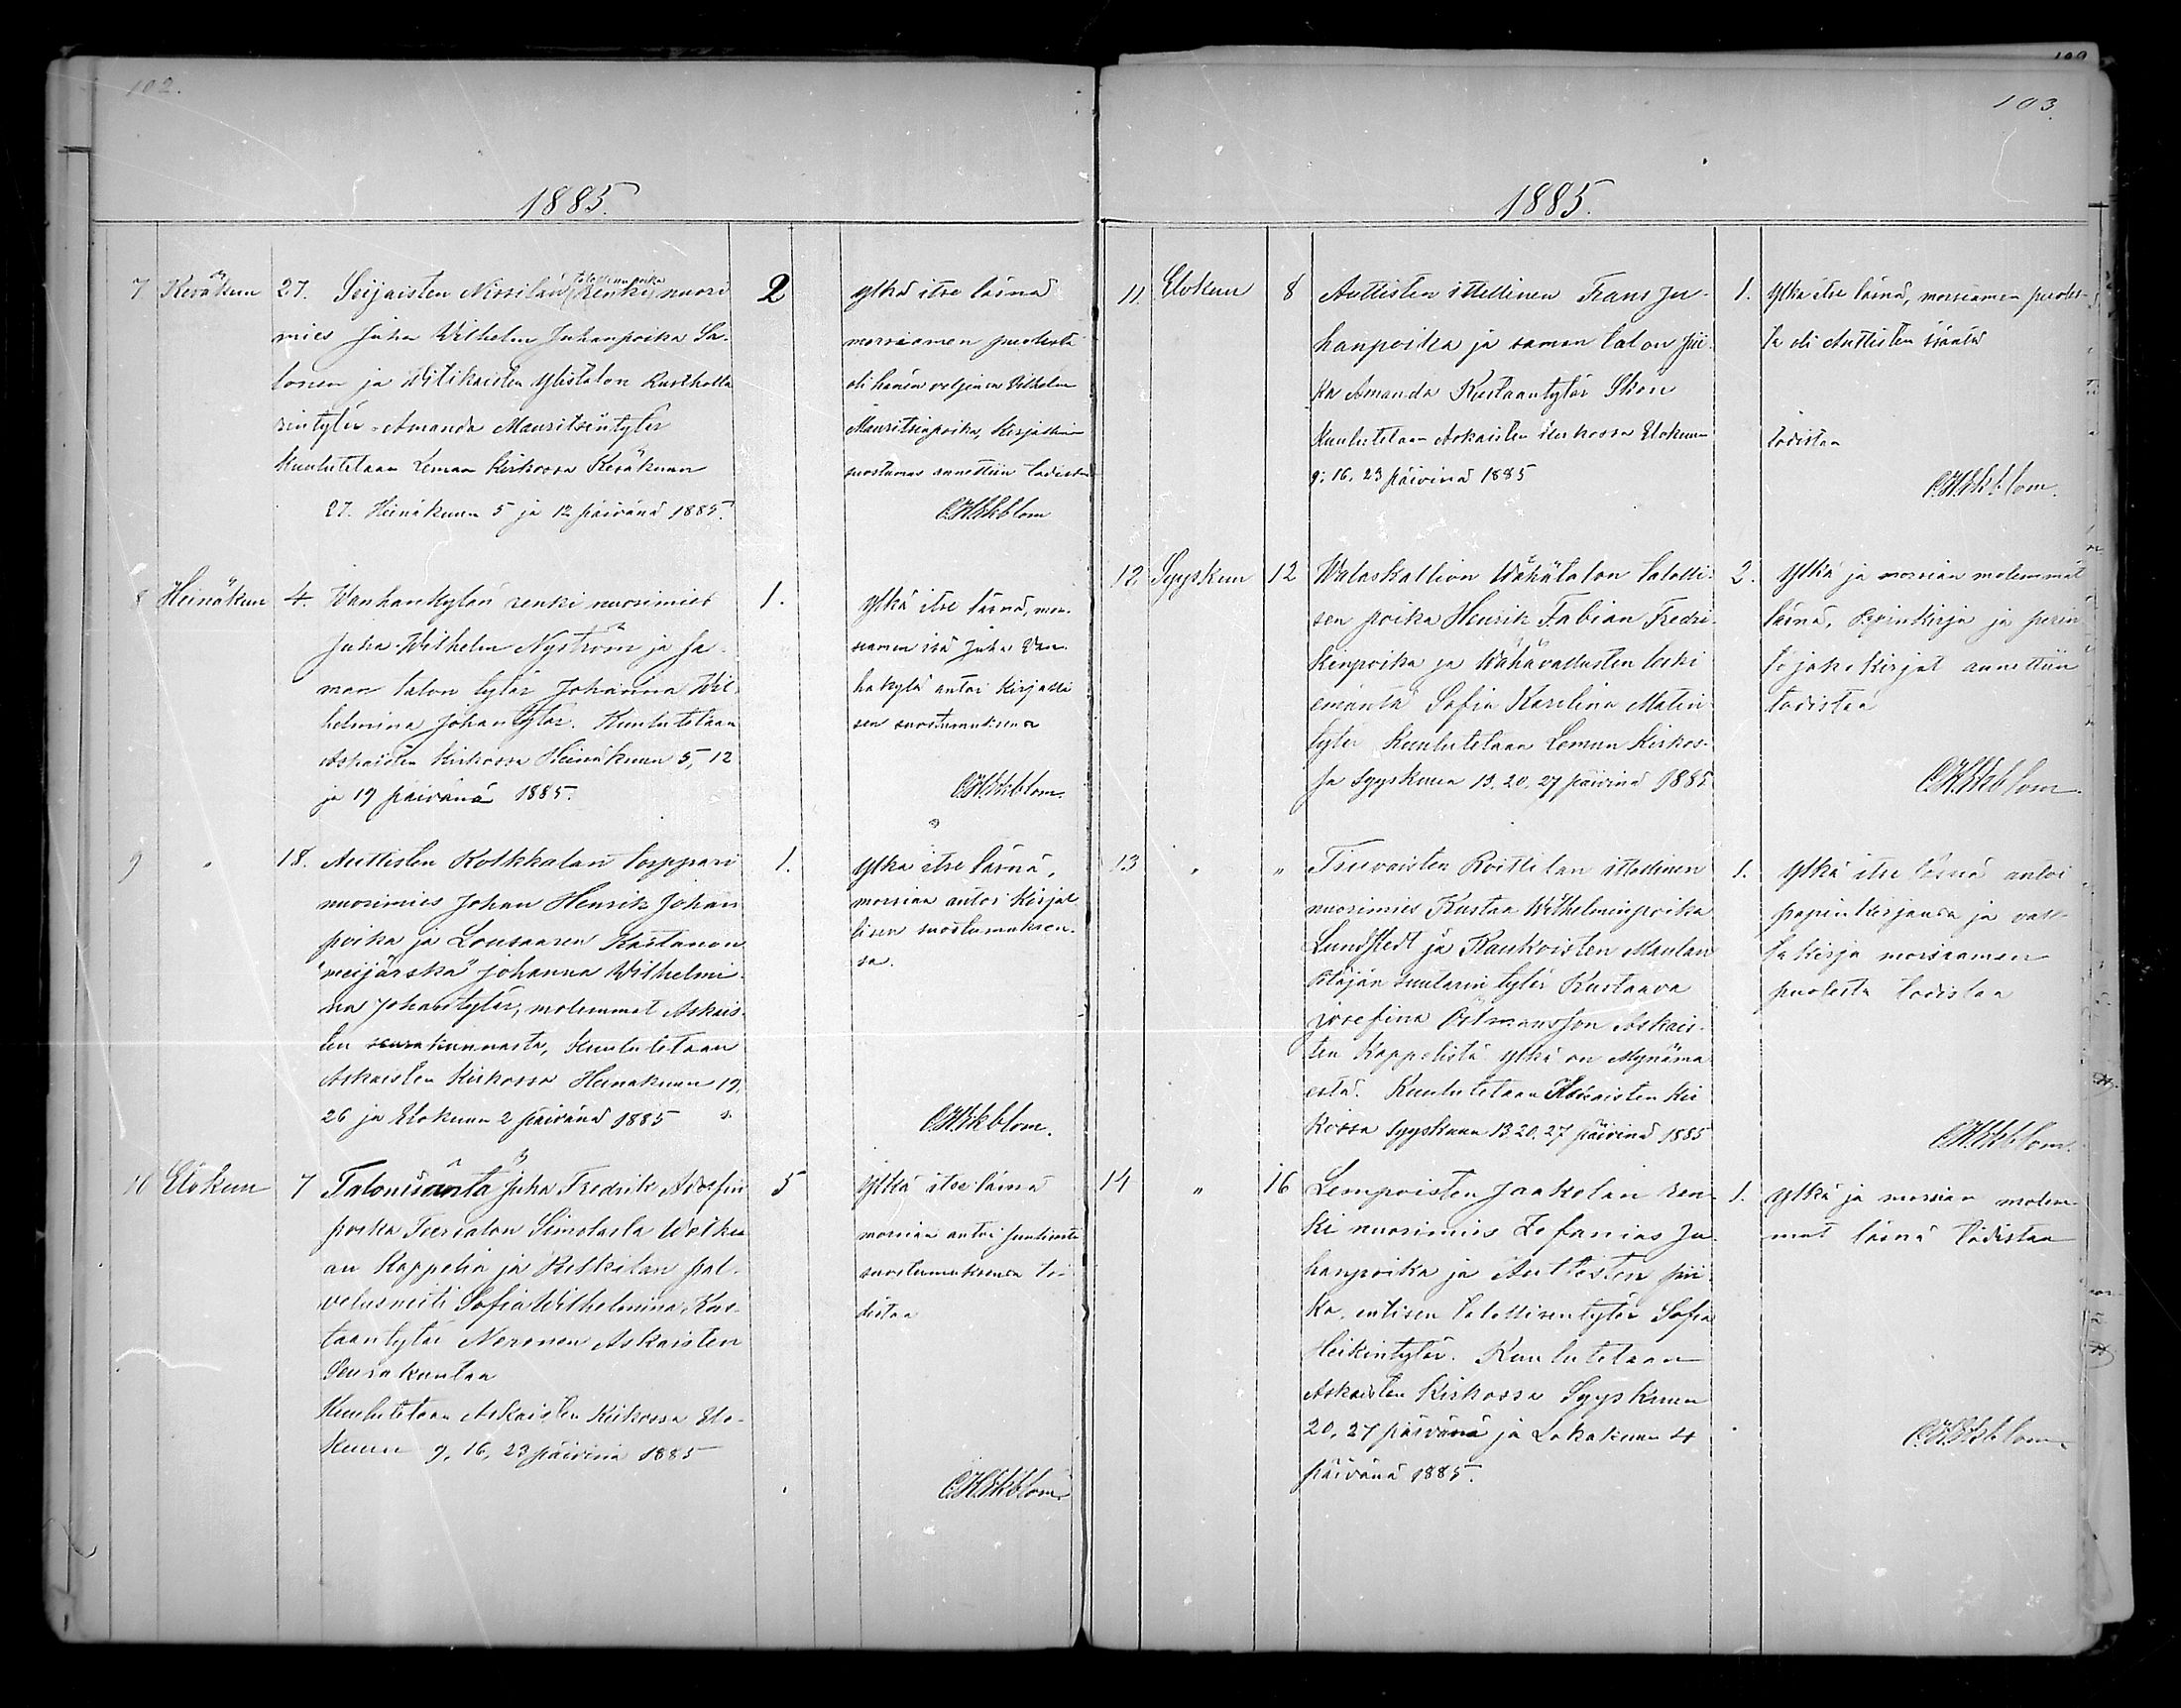 102.
1885.
7 Kesäkuu 27. Seijaisten Nissilän renki nuori 2
talollisenpoika
mies Juha Wilhelm Juhanpoika Sa-
lonen ja Witikaisten Ylistalon Rustholla
rintytär Amanda Mauritsintytär
Kuulutetaan Leman Kirkossa Kesäkuun
27. Heinäkuun 5 ja 12 päivänä 1885.
Ylkä itse läsnä
morsiamen puolesta
oli hänen veljensä Wilhelm
Mauritsinpoika, Kirjallinen
suostumus annettiin todistaa
C.H.Ekblom
8 Heinäkuu 4. Vanhankylän renki nuorimies 1.
Juha Wilhelm Nyström ja sa-
man talon tytär Johanna Wil-
helmina Johantytär. Kuulutetaan
Askaisten Kirkossa Heinäkuun 5, 12
ja 19 päivänä 1885.
Ylkä itse läsnä, mor-
siamen isä Juha Van-
hakylä antoi Kirjalli
sen suostumuksensa
C.H.Ekblom.
9 " 18. Auttisten Kolkkalan torppari 1.
nuorimies Johan Henrik Johan
poika ja Lousaaren Kartanon
"meijärska" Johanna Wilhelmi-
na Johantytär, molemmat Askais-
ten seurakunnasta, Kuulutetaan
Askaisten Kirkossa Heinäkuun 19,
26 ja Elokuun 2 päivänä 1885
Ylkä itse läsnä,
morsian antoi Kirjal-
lisen suostumuksen-
sa.
C.H.Ekblom.
10 Elokuu 7 Talonisäntä Juha Fredrik 5
poika Simolasta
an Kappelia ja pal-
velusneiti Sofia Wilhelmina Kus-
taantytär Neronen Askaisten
Seurakuntaa
Kuulutetaan Askaisten Kirkossa Elo-
kuun 9, 16, 23 päivinä 1885
Ylkä itse läsnä
morsian antoi
suostumuksensa to-
distaa
C.H.Ekblom
103.
1885.
11. Elokuu 8 Auttisten itsellinen Frans Ju- 1.
hanpoika ja saman talon pii-
ka Amanda Kustaantytär Skön
Kuulutetaan Askaisten Kirkossa Elokuun
9; 16, 23 päivinä 1885
Ylkä itse läsnä, morsiamen puoles-
ta oli Auttisten isäntä
todistaa
C.H.Ekblom.
12 Syyskuu 12 Wataskallion Wähätalon talolli- 2.
sen poika Henrik Fabian Fredri-
kinpoika ja Wähävallusten leski
emäntä Sofia Karolina Matin
tytär Kuulutetaan Leman Kirkos-
sa Syyskuun 13, 20, 27 päivinä 1885
Ylkä ja morsian molemmat
läsnä, ja perin
töjakokirjat annettiin
todistaa
C.H.Ekblom.
13 " " Roittilan itsellinen 1.
nuorimies Kustaa Wilhelminpoika
Lundstedt ja Kaukoisten Maulan
suutarin tytär Kustaava
Josefina Östmansson Askais-
ten Kappelistä ylkä on Mynämä
estä. Kuulutetaan Askaisten Kir
kossa Syyskuun 13. 20. 27 päivinä 1885
Ylkä itse läsnä antoi
papinkirjansa ja vas-
takirja morsiamen
puolesta todistaa
C.H.Ekblom.
14 " 16 Lempoisten Jaakolan ren- 1.
ki nuorimies Zefanias Ju-
hanpoika ja Auttisten pii-
ka, entisen talollisentytär Sofia
Heikintytär. Kuulutetaan
Askaisten Kirkossa Syyskuun
20, 27 päivänä ja Lokakuun 4
päivänä 1885.
Ylkä ja morsian molem-
mat läsnä todistaa
C.H.Ekblom.